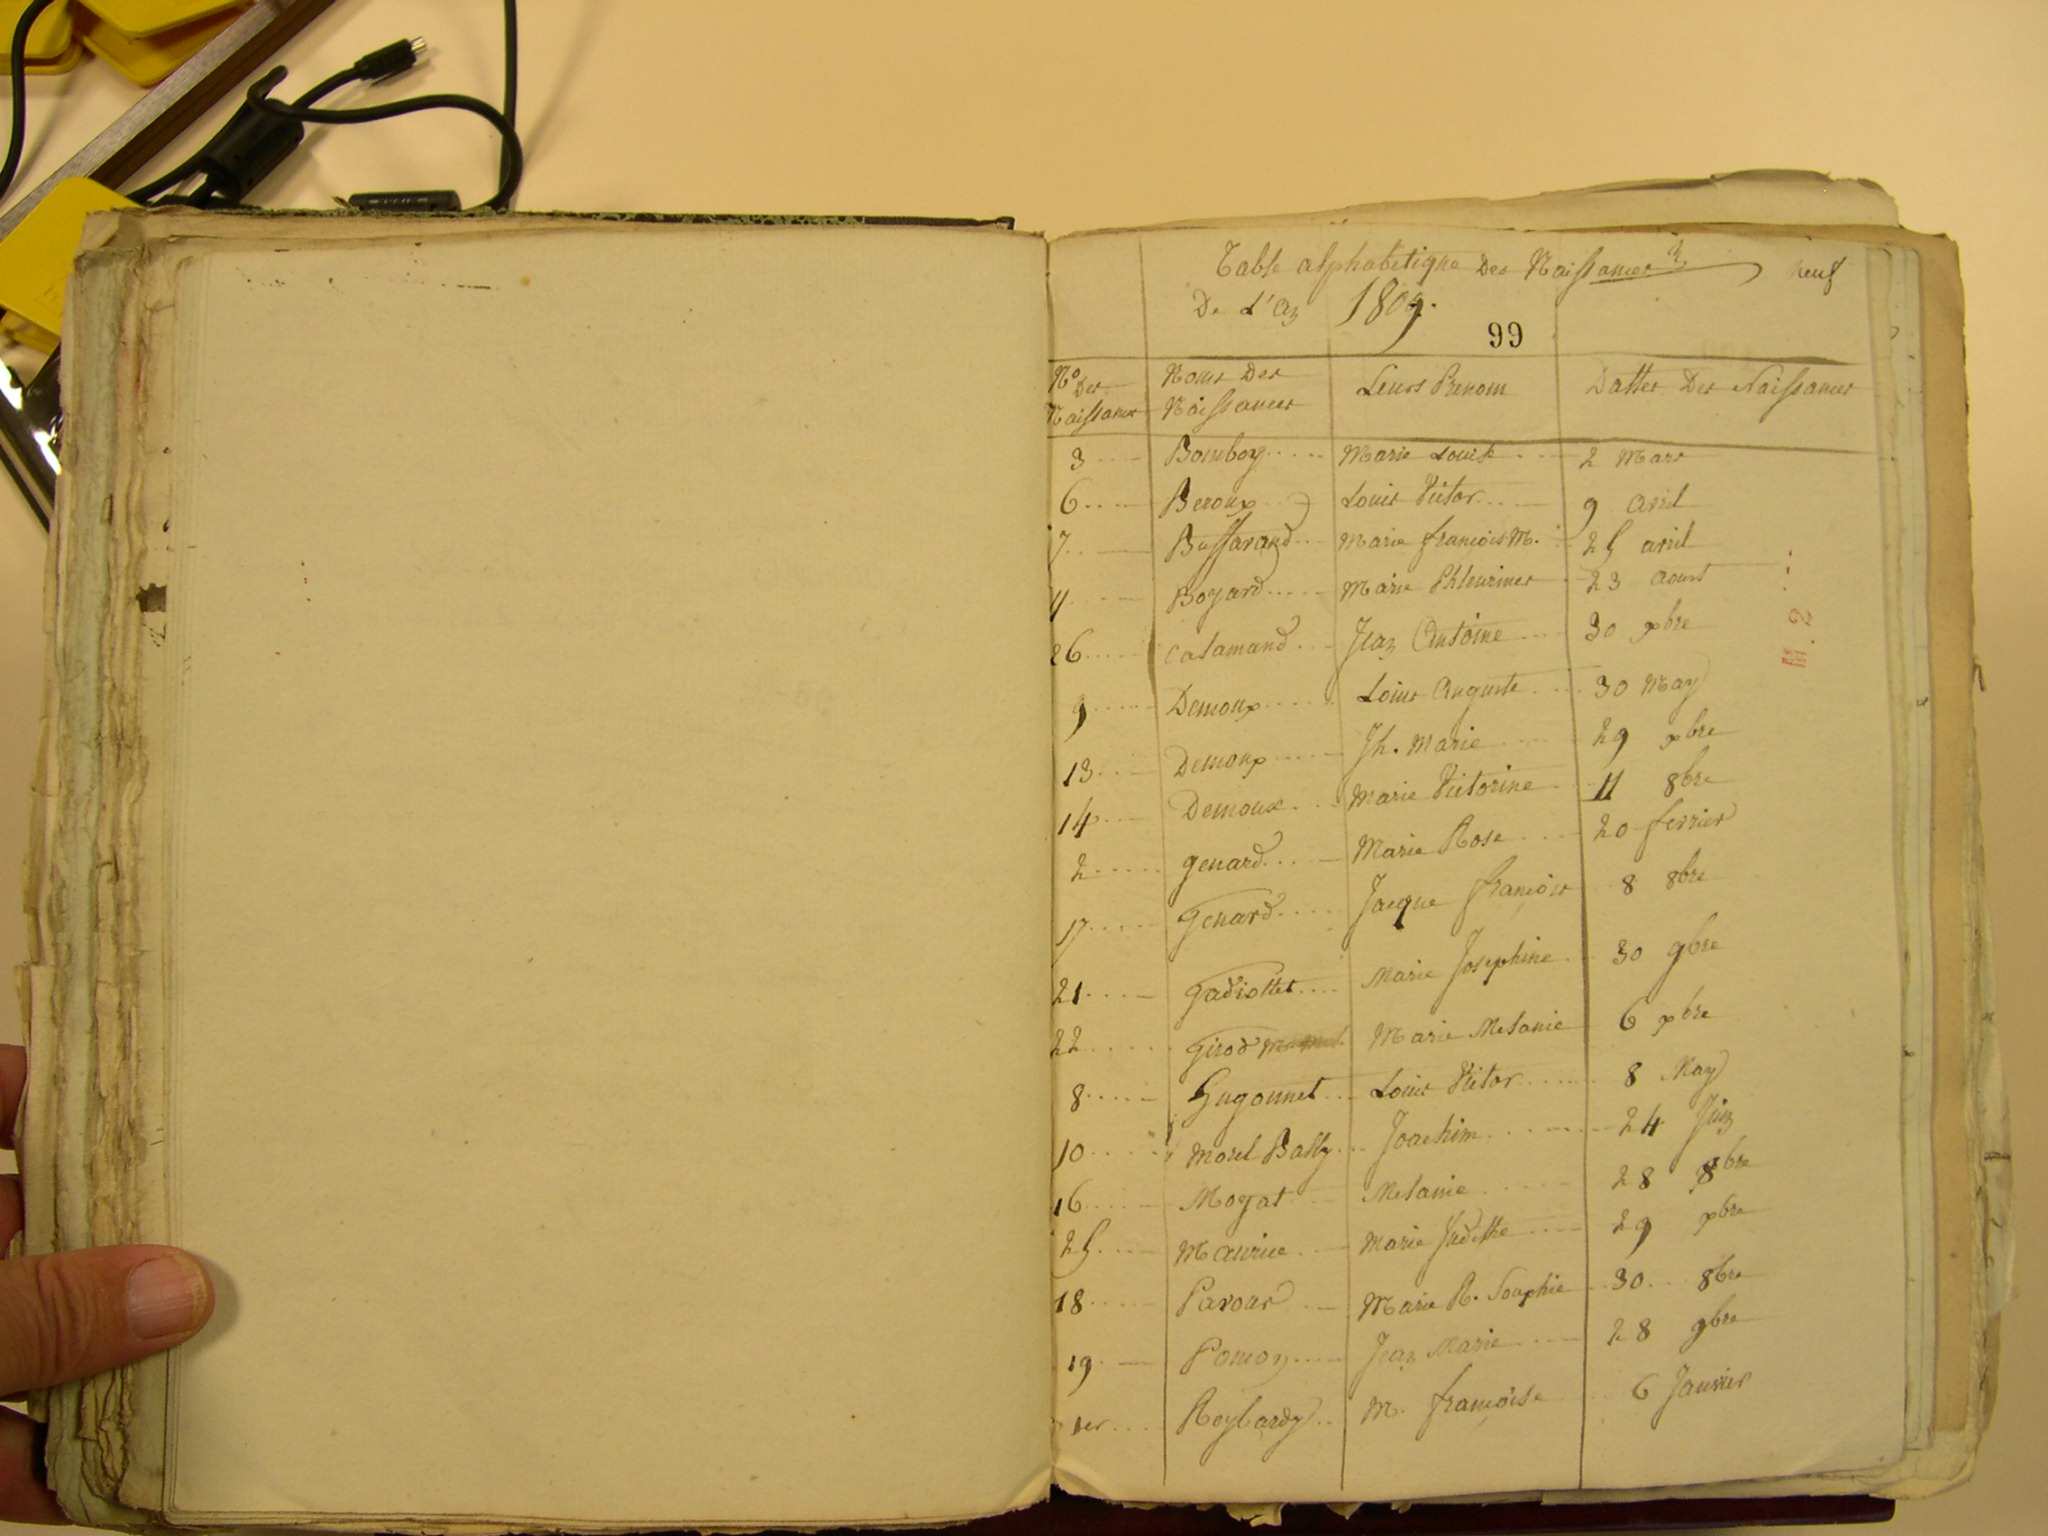 Table alphabétique Des Naissances neuf
De L'an 1809.
99
No Des Naissances Noms Des Naissances Leurs Prenom Dattes Des Naissances
3 Bomboy Marie Louise 2 Mars
6 Beroux Louis Victor 9 avril
7 Buffarand Marie francoise M. 25 avril
11 Boyard Marie 23 Aoust
26 Calamand Jean Antoine 30 xbre
9 Demoux Louis Auguste 30 May
13 Demoux Jh. Marie 29 xbre
14 Demoux Marie Victorine 11 8bre
2 genard Marie Rose 20 fevrier
17 Genard Jacque françois 8 8bre
21 Gadiollet Marie Josephine 30 9bre
22 Girod Marie Melanie 6 xbre
8 Hugonnet Louis Victor 8 May
10 Morel Bailly Joachim 24 Juin
16 Moyat Melanie 28 8bre
25 Maurice Marie Judithe 29 xbre
18 Pavour Marie R. Souphie 30 8bre
19 Pomon Jean Marie 28 9bre
1er Reybardy M. françoise 6 Janvier